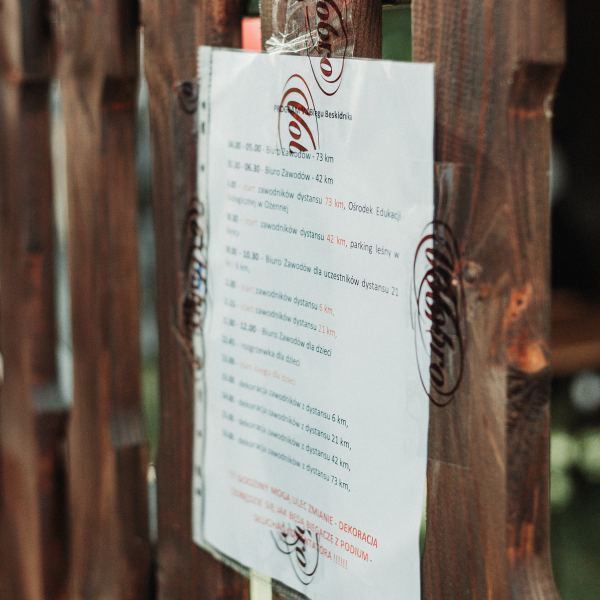 Biegu Beskidnika
05.00 - Biuro Zawodów - 73 km
06.30 - Biuro Zawodów - 42 km
start zawodników dystansu 73 km, Ośrodek Edukacji
w Ożennej
start zawodników dystansu 42 km, parking leśny w
10.30 - Biuro Zawodów dla uczestników dystansu 21
km,
start zawodników dystansu 6 km,
start zawodników dystansu 21 km,
12.00 - Biuro Zawodów dla dzieci
- rozgrzewka dla dzieci
- start biegu dla dzieci
- dekoracja zawodników z dystansu 6 km,
- dekoracja zawodników z dystansu 21 km,
- dekoracja zawodników z dystansu 42 km,
- dekoracja zawodników z dystansu 73 km,
GODZINY MOGĄ ULEC ZMIANIE - DEKORACJA
SIĘ JAK BĘDĄ BIEGACZE Z PODIUM -
Wobro